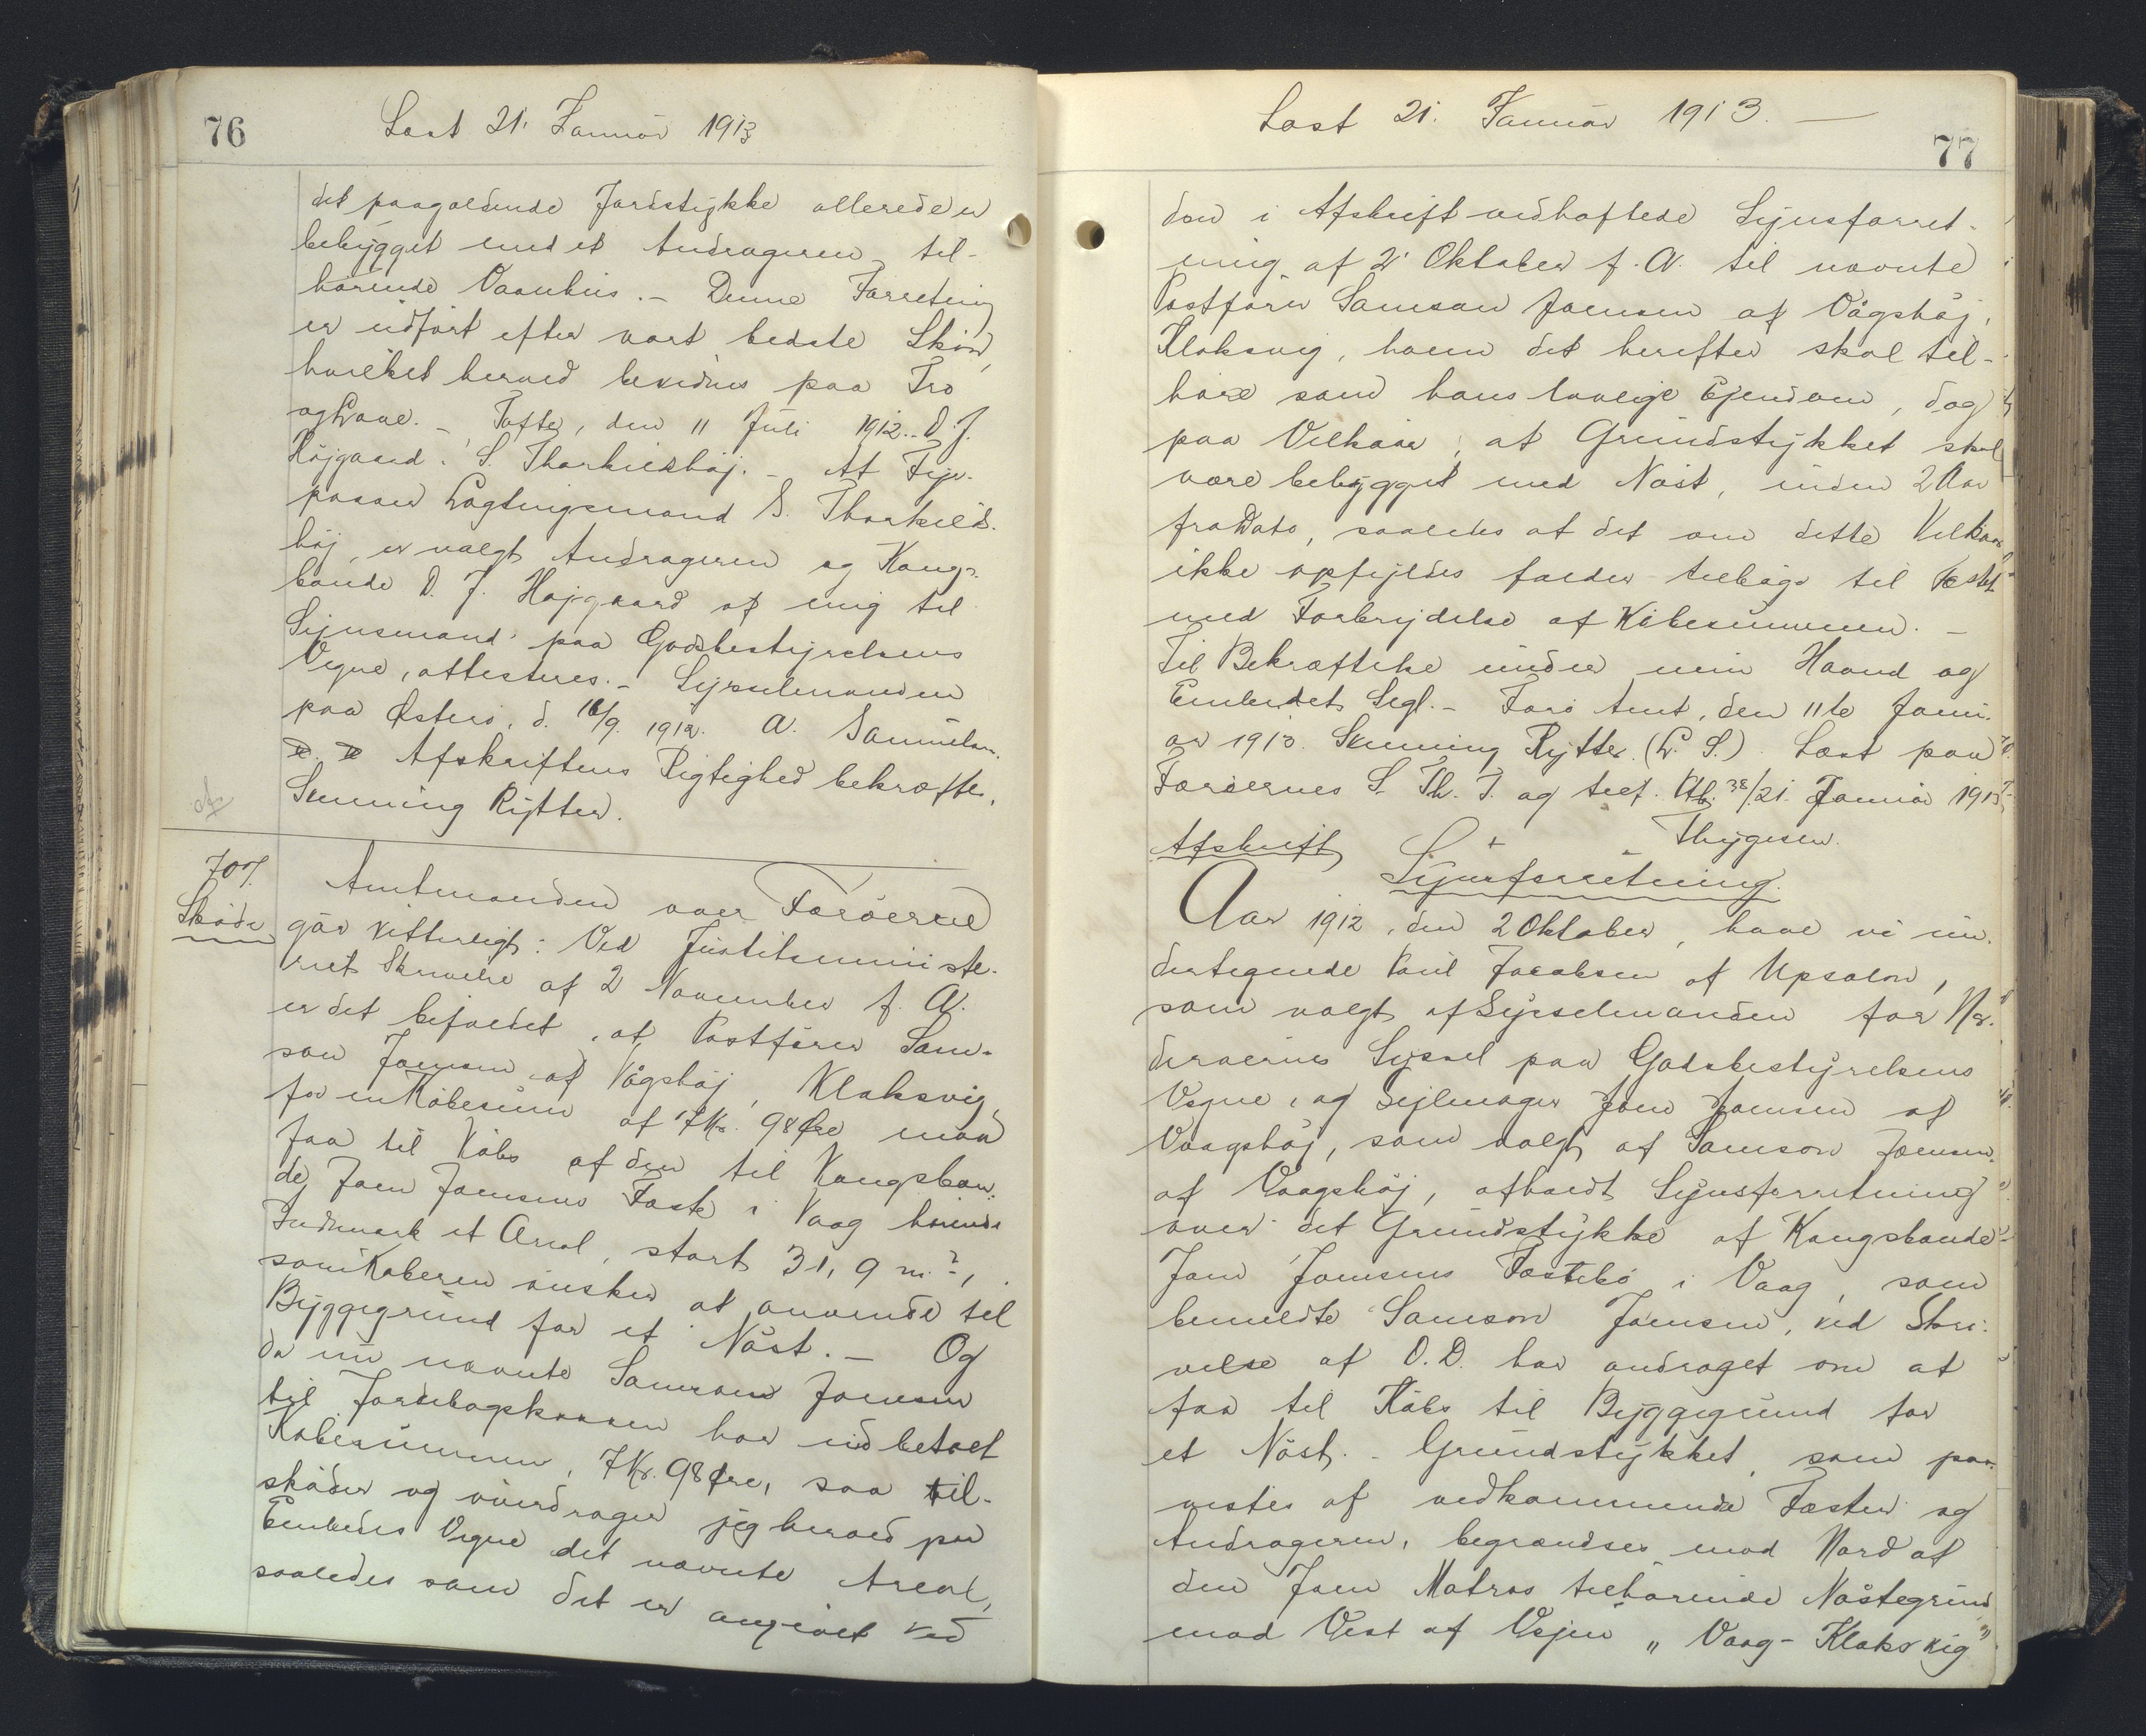 76
Læst 21. Januar 1913
det paagældende Jordstykke allerede er
bebygget med et Andrageren til-
hørende Vaanhus. - Denne Forretning
er udført efter vort bedste Skøn,
hvilket herved bevidnes paa Tro
og Love. - Tofte, den 11 Juli 1912. D. J.
Højgaard. S. Thorkilshøj. - At Fyr-
passer Lagtingsmand S. Thorkilds-
høj er valgt Andrageren og Kongs-
bonde D. J. Højgaard af mig til
Synsmand paa Godsbestyrelsens
Vegne, attesteres. - Sysselmanden
paa Østerø, d. 16/9. 1912. A. Samuelsen.
Afskriftens Rigtighed bekræftes.
Svenning Rytter.
707.
Skøde
Amtmanden over Færøerne
gør vitterligt: Ved Justitsministe-
riets Skrivelse af 2 November f. A.
er det bifaldet, at Postfører Sam-
son Joensen af Vågshøj, Klaksvig,
for en Købesum af 7 Kr. 98 Øre maa
faa til Købs af den til Kongsbon-
de Joen Joensens Fæste i Vaag hørende
Indmark et Areal, stort 31,9 m²,
som Køberen ønsker at anvende til
Byggegrund for et Nøst. - Og
da nu nævnte Samson Joensen
til Jordebogskassen har indbetalt
Købesummen, 7 Kr. 98 Øre, saa til-
skøder og overdrager jeg herved paa
Embedets Vegne det nævnte Areal,
saaledes som det er angivet ved
Læst 21. Januar 1913. -
77
den i Afskrift vedhæftede Synsforret-
ning af 2' Oktober f. A. til nævnte
Postfører Samson Joensen af Vågshøj,
Klaksvig, hvem det herefter skal til-
høre som hans lovlige Ejendom, dog
paa Vilkaar, at Grundstykket skal
være bebygget med Nøst, inden 2 Aar
fra Dato, saaledes at det om dette Vilkaar
ikke opfyldes falder tilbage til Fæstet
med Forbrydelse af Købesummen. -
Til Bekræftelse under min Haand og
Embedets Segl. - Færø Amt, den 11te Janu-
ar 1913. Svenning Rytter. (L. S.) Læst paa
Færøernes S. Th. J. og tref. 38/21. Januar 1913
Thygesen.
Afskrift
Synsforretning.
Aar 1912, den 2 Oktober, have vi un-
dertegnede Poul Jacobsen af Upsalon,
som valgt af Sysselmanden for Nor-
derøernes Syssel paa Godsbestyrelsens
Vegne, og Sejlmager Joen Joensen af
Vaagshøj, som valgt af Samson Joensen
af Vaagshøj, afholdt Synsforretning
over det Grundstykke af Kongsbonde
Joen Joensens Fæstebø i Vaag, som
bemeldte Samson Joensen, ved Skri-
velse af D.D. har andraget om at
faa til Købs til Byggegrund for
et Nøst. - Grundstykket, som paa-
vistes af vedkommende Fæster og
Andrageren, begrændses mod Nord af
den Joen Matras tilhørende Nøstegrund
mod Vest af Vejen "Vaag-Klaksvig"